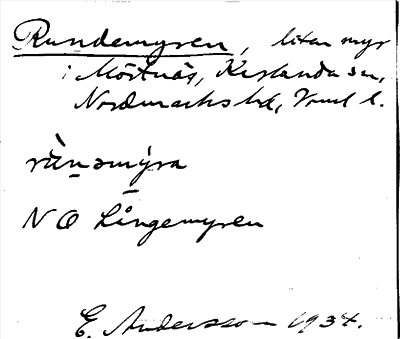 Rundemyren, liten myr
i Mörtnäs, Karlanda sn,
Nordmarks hd, Vrml l.
rùnəmýra
N O Långemyren
E. Andersson 1934.